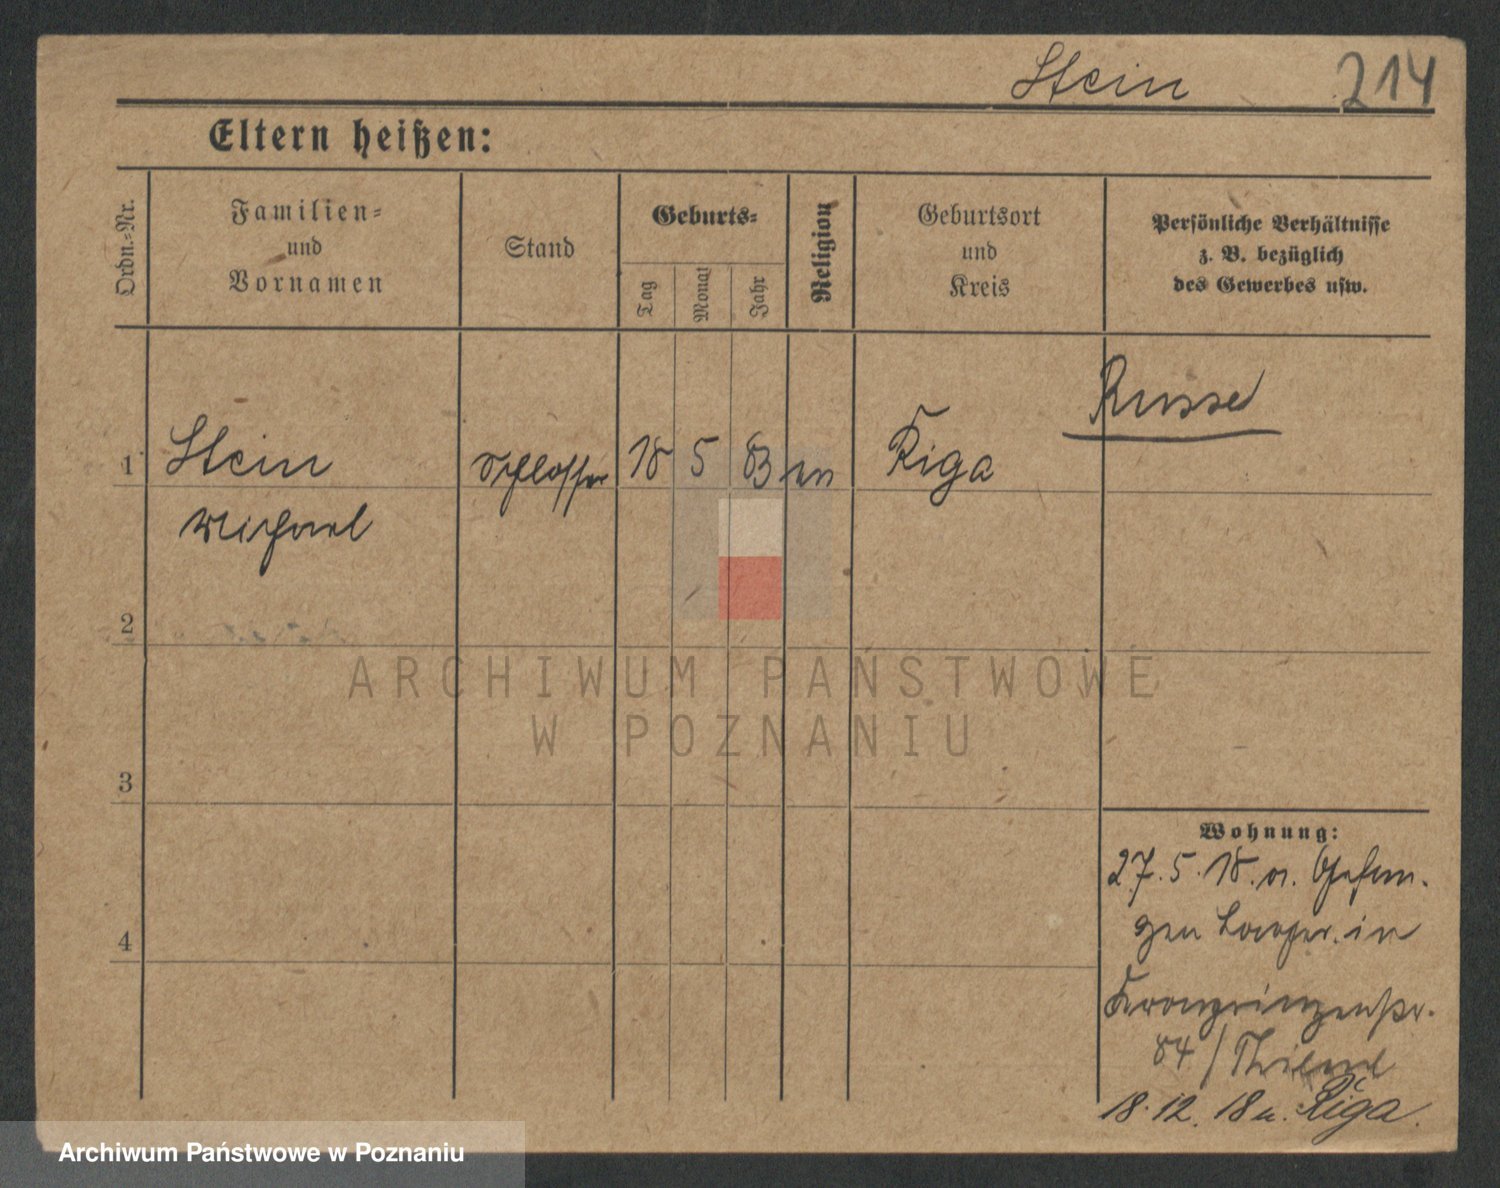 Stein 214
Eltern heißen:
Ordn.-Nr.
Familien-
und
Vornamen
Stand
Geburts-
Tag
Monat
Jahr
Religion
Geburtsort
und
Kreis
Persönliche Verhältnisse
z. B. bezüglich
des Gewerbes usw.
Russe
1 Stein Schlosser 18 5 83 ev Riga
Michael
2
3
4
Wohnung:
27.5.18. v. Gefan-
gen Lager. in
Kronprinzenstr.
84 /
18.12.18 n. Riga.
ARCHIWUM PAŃSTWOWE
W POZNANIU
Archiwum Państwowe w Poznaniu